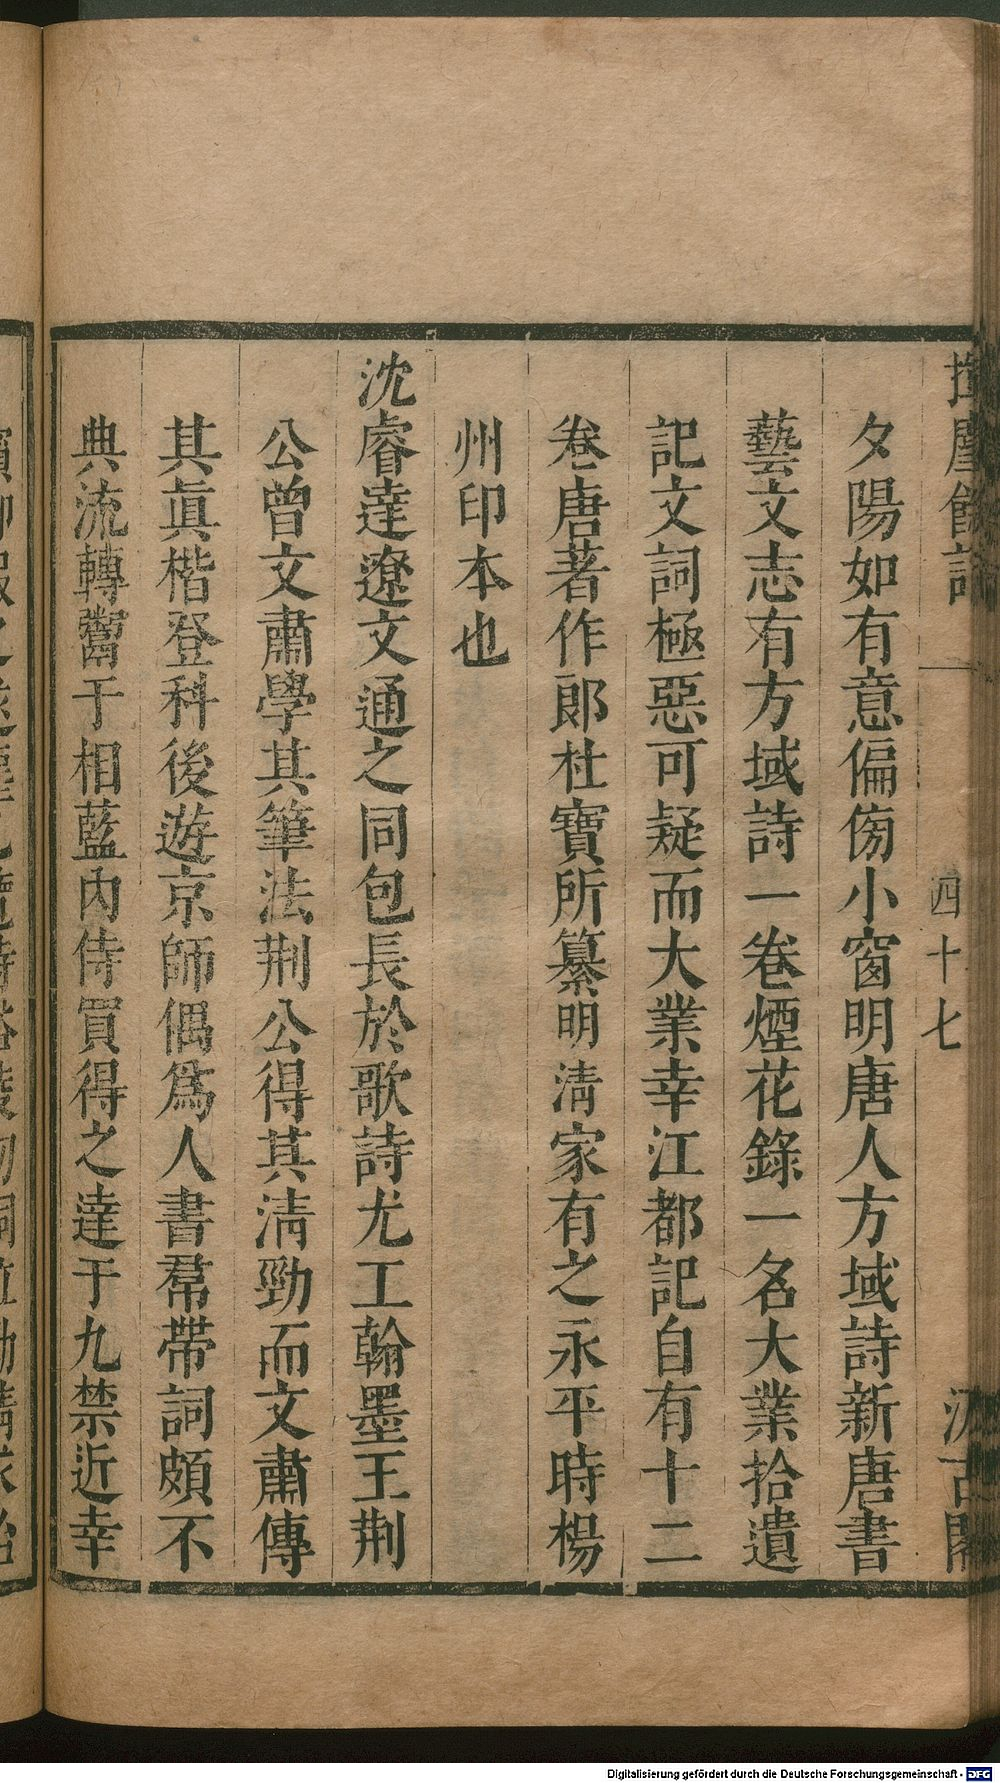 揮麈餘話
四十七
汲古閣
夕陽如有意偏傍小窗明唐人方域詩新唐書
藝文志有方域詩一卷煙花錄一名大業拾遺
記文詞極惡可疑而大業幸江都記自有十二
卷唐著作郎杜寶所纂明淸家有之永平時楊
州印本也
沈睿達遼文通之同包長於歌詩尤工翰墨王荆
公曾文肅學其筆法荆公得其淸勁而文肅傳
其眞楷登科後遊京師偶爲人書帬帶詞頗不
典流轉鬻于相藍內侍買得之達于九禁近幸
Digitalisierung gefördert durch die Deutsche Forschungsgemeinschaft - DFG